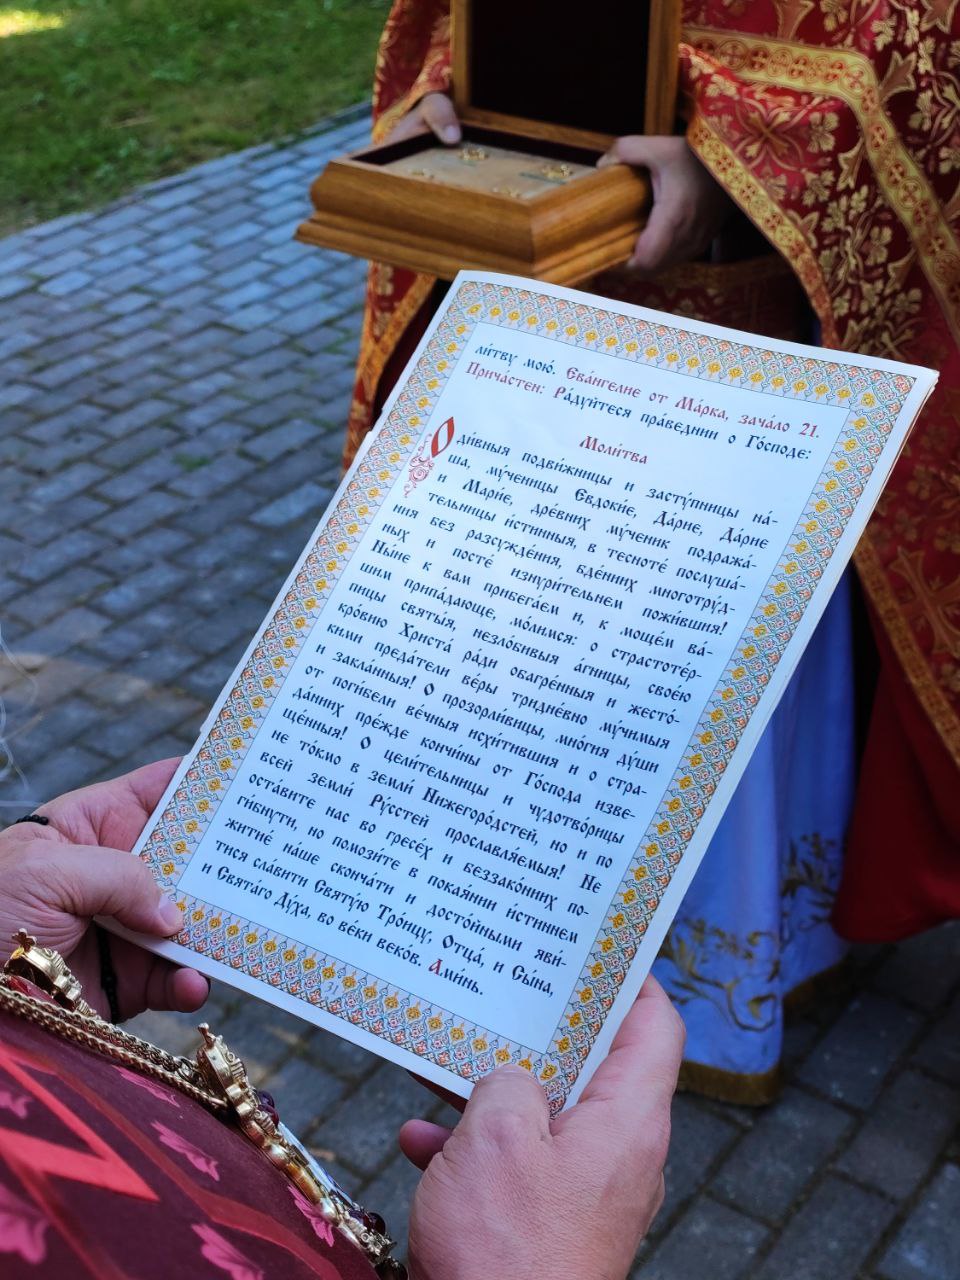 ли́тву мою́. Ева́нгелие от Ма́рка, зача́ло 21.
Прича́стен: Ра́дуйтеся пра́веднии о Го́споде:
Моли́тва
О ди́вныя подви́жницы и засту́пницы на́-
ша, му́ченицы Евдоки́е, Да́рие, Да́рие
и Мари́е, дре́вних му́ченик подража́-
тельницы и́стинныя, в тесноте́ послуша́-
ния без разсужде́ния, бде́ниих многотру́д-
ных и посте́ изнури́тельнем пожи́вшия!
Ны́не к вам прибега́ем и, к моще́м ва́-
шим припа́дающе, мо́лимся: о страстоте́р-
пицы святы́я, незло́бивыя а́гницы, свое́ю
кро́вию Христа́ ра́ди обагре́нныя и жесто́-
кими преда́тели ве́ры тридне́вно му́чимыя
и закла́нныя! О прозорли́вицы, мно́гия ду́ши
от поги́бели ве́чныя исхи́тившия и о стра-
да́ниих пре́жде кончи́ны от Го́спода изве-
ще́нныя! О цели́тельницы и чудотво́рицы
не то́кмо в земли́ Нижегоро́дстей, но и по
всей земли́ Ру́сстей прославля́емы! Не
оста́вите нас во гресе́х и беззако́ниих по-
ги́бнути, но помози́те в покая́нии и́стиннем
житие́ на́ше сконча́ти и досто́йными яви́-
тися сла́вити Святу́ю Тро́ицу, Отца́, и Сы́на,
и Свята́го Ду́ха, во ве́ки веко́в. Ами́нь.
31